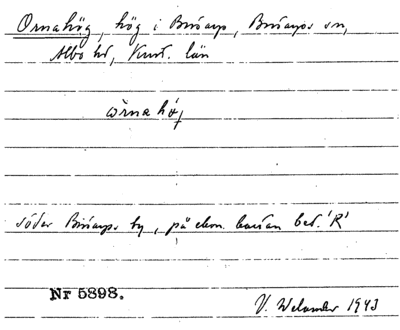 Ornahög, hög i Brösarp, Brösarps sn,
Albo hd, Krist. län
söder Brösarps by, på ekon. kartan bet. 'R'
Nr 5898.
V. Welander 1943